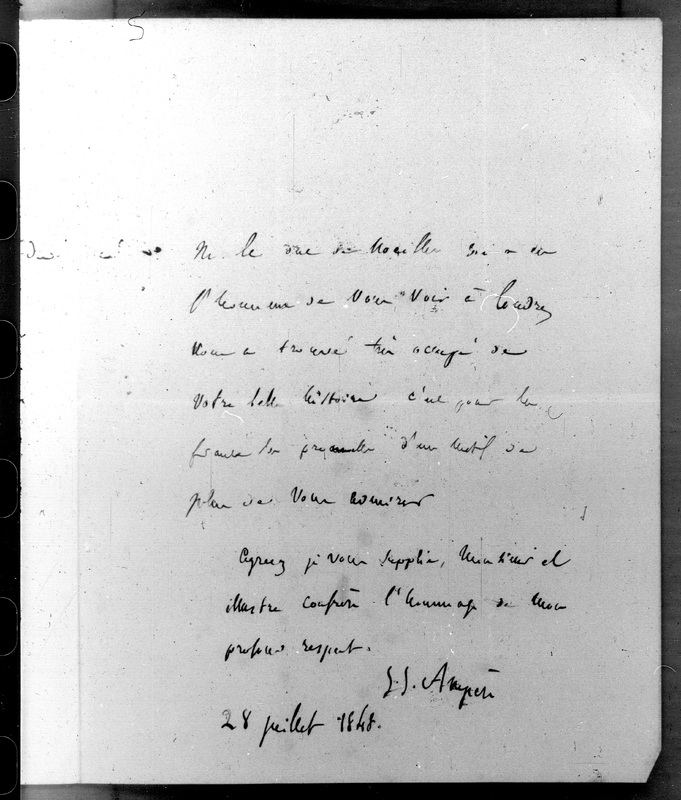 5
M. le duc de Noailles qui a eu
l'honneur de vous voir à Londres
vous a trouvé très occupé de
votre belle histoire c'est pour la
france la promesse d'un motif de
plus de vous admirer
Agréez je vous supplie, Monsieur et
illustre confrère l'hommage de mon
profond respect.
J.J. Ampère
28 juillet 1848.